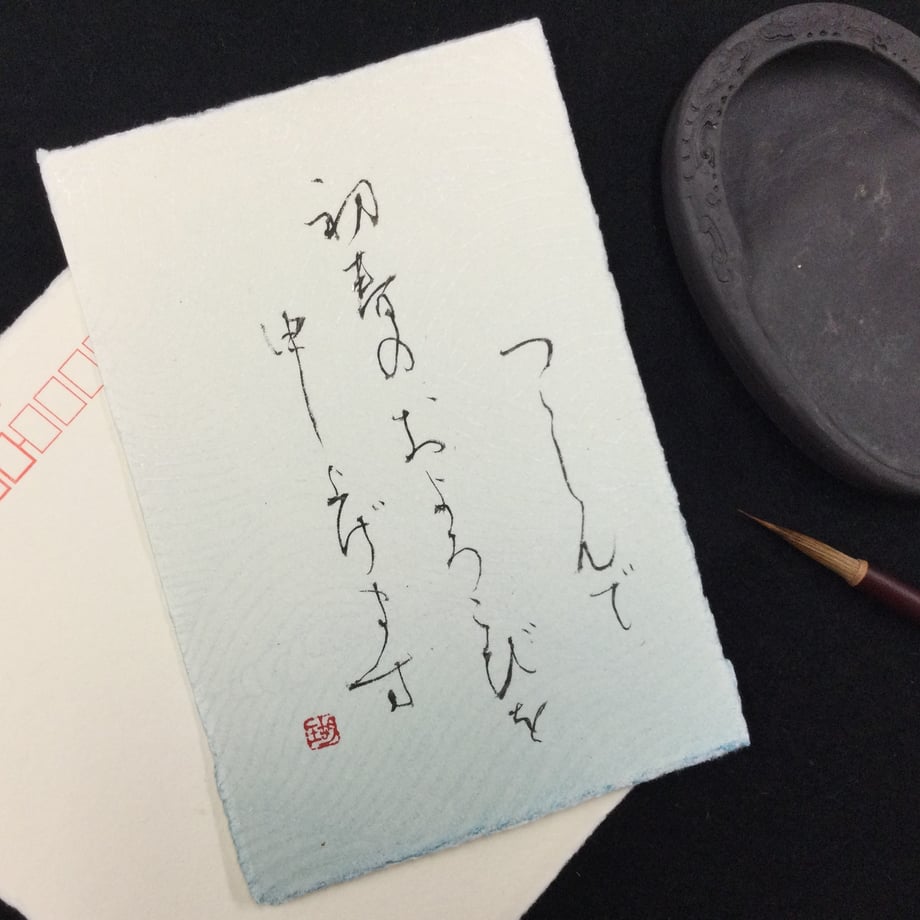 つゝしんで
初春のおよろこびを
申し上げます